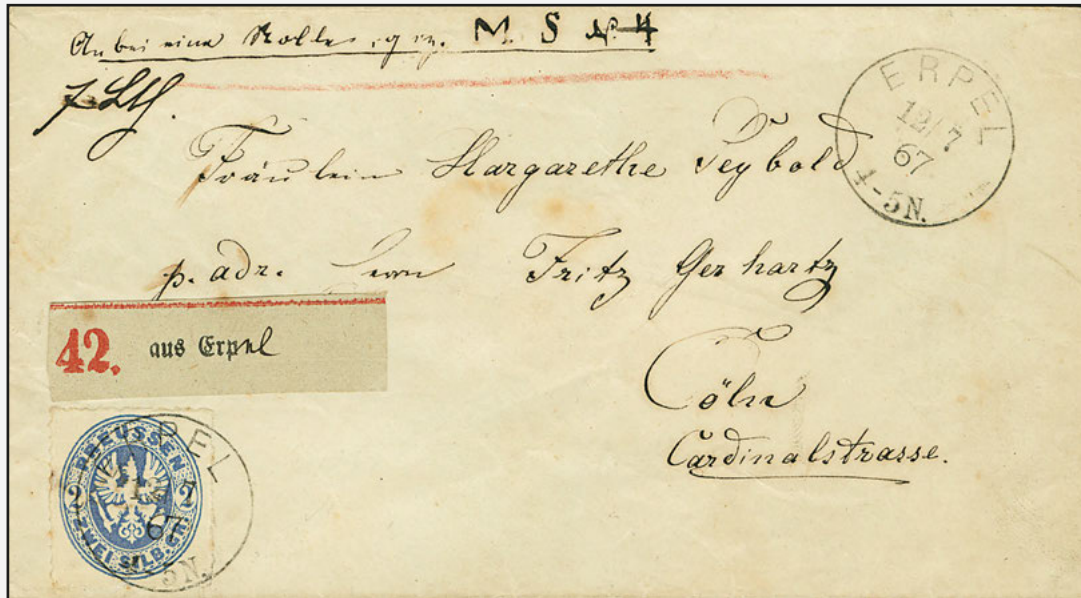 Anbei eine Rolle, gez. M. S. № 4
7 Lth.
ERPEL
12/7
67
4-5N.
Fräulein Margarethe Seybold
p. adr. Herrn Fritz Gerhartz
42. aus Erpel
Cöln
Cardinalstrasse.
PREUSSEN
2 2
ZWEI SILB. GR.
ERPEL
12/7
67
4-5N.